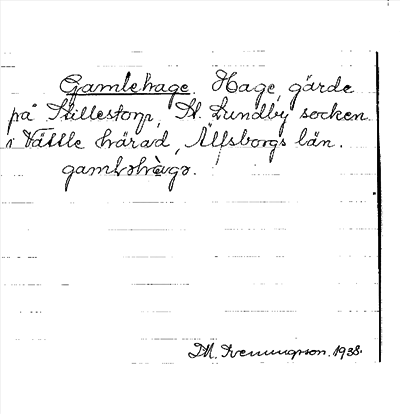 Gamlehage. Hage, gärde
på Skillestorp, St. Lundby socken
i Vättle härad, Älfsborgs län.
gamləhàgə.
M. Svenungsson. 1938.